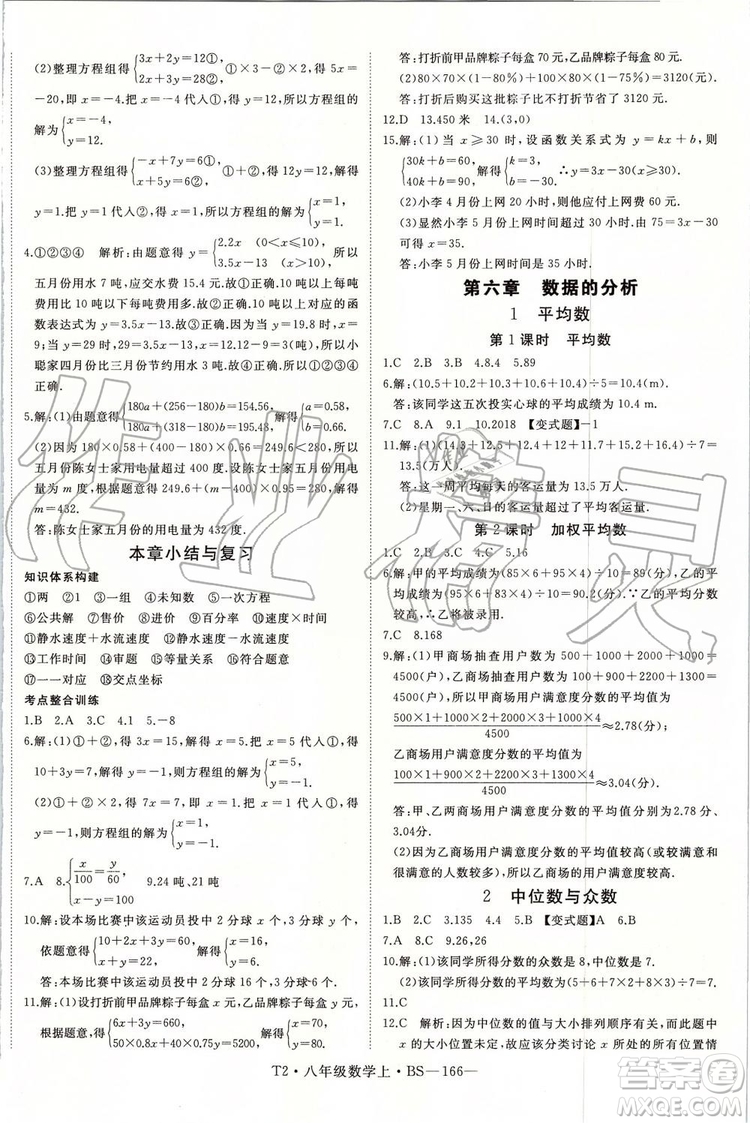 (2)整理方程组得{3x+2y=12①,3x+y=28②,①×2-②得5x=
-20,即x=-4.把x=-4代入①得y=12.所以方程组的
解为{x=-4,y=12.
(3)整理方程组得{-x+7y=6①,x+y=2②,①+②,得8y=8,即
y=1.把y=1代入②得x=1.所以方程组的解为{x=1,y=1.
4.①②③④ 解析:由题意得y={2.2x (0<x≤10),3.5x-13 (x>10),所以
五月份用水7吨,应交水费15.4元.
函数表达式为y=3.5x-13.
聪家四月份比三月份节约用水3吨.
正确.
5.解:(1)由题意得{180a+(256-180)b=154.56,180a+(248-180)b=149.6.解得{a=0.58,b=0.66.
(2)因为
以五月份陈女士家用电量超过400度.设五月份用电量
为m度,根据题意得249.6+(m-400)×0.9=278.4.解得
m=432.
答:陈女士家五月份的用电量为432度.
本章小结与复习
知识体系构建
①两 ②1 ③一组 ④未知数 ⑤一次方程
⑥公共解 ⑦售价 ⑧进价 ⑨百分率 ⑩速度×时间
⑪静水速度+水流速度 ⑫静水速度-水流速度
⑬工作时间 ⑭审题 ⑮等量关系 ⑯一次函数
⑰一一对应 ⑱交点坐标
考点整合训练
1.B 2.A 3.C 4.1 5.-8
6.解:(1)①+②,得3x=15,解得x=5.把x=5代入①得
10+3y=7,解得y=-1,则原方程组的解为{x=5,y=-1.
(2)①+②×2,得7x=7,即x=1.把x=1代入①得
y=-1.所以原方程组的解为{x=1,y=-1.
7.A 8.{x/100=y/60,x-y=100 9.24吨、21吨
10.解:设本场比赛中该运动员投中2分球x个,3分球y个,
依题意得{6+2x+3y=60,x+y=22.解得{x=16,y=6.
答:本场比赛中该运动员投中2分球16个,3分球6个.
11.解:(1)设打折前甲品牌粽子每盒x元,乙品牌粽子每盒y元,
根据题意,得{6x+3y=660,50×0.8x+40×0.75y=5200.解得{x=70,y=80.
答:打折前甲品牌粽子每盒70元,乙品牌粽子每盒80元.
(2)80×70×(1-80%)+100×80×(1-75%)=3120(元).
答:打折后购买这批粽子比不打折节省了3120元.
12.D 13.450米 14.(3,0)
15.解:(1)当x≥30时,设函数关系式为y=kx+b,则
{30k+b=60,40k+b=90.解得{k=3,b=-30.∴y=3x-30(x≥30).
(2)小李4月份上网20小时,则他应付上网费60元.
(3)显然小李5月份上网时间超过30小时.由75=3x-30
得x=35.
答:小李5月份上网时间是35小时.
第六章 数据的分析
1 平均数
第1课时 平均数
1.C 2.B 3.B 4.8.4 5.89
6.解:(10.5+10.2+10.3+10.6+10.4)÷5=10.4(m).
答:该同学这五次投实心球的平均成绩为10.4m.
7.C 8.A 9.1 10.2018 【变式题】-1
11.解:(1)
13.5(万人).
答:这一周平均每天的客运量为13.5万人.
(2)星期一、六、日的客运量超过了平均客运量.
第2课时 加权平均数
1.C 2.D 3.C 4.C 5.16
6.解:甲的平均成绩为(85×6+93×4)÷10=88.2(分),
乙的平均成绩为
较高,∴乙将被录取.
7.C 8.168
9.解:(1)甲商场抽查用户数为500+1000+2000+1000=
4500(户),乙商场抽查用户数为100+900+2200+1300=
4500(户).所以甲商场满意度分数的平均值为
(500×1+1000×2+2000×3+1000×4)/4500≈2.78(分);
乙商场用户满意度分数的平均值为
(100×1+900×2+2200×3+1300×4)/4500≈3.04(分).
答:甲、乙两商场用户满意度分数的平均值分别为2.78分、
3.04分.
(2)因为乙商场用户满意度分数的平均值较高(或较满意
和很满意的人数较多),所以乙商场的用户满意度较高.
2 中位数与众数
1.B 2.C 3.135 4.4 5.B 【变式题】A 6.B
7.A 8.C 9.26,26
10.解:(1)该同学所得分数的众数是8,中位数是7.
(2)该同学所得分数的平均数为(5+6+7×2+8×3)÷7=7.
11.C
12.C 解析:因为中位数的值与大小排列顺序有关,而此题
中x的大小位置未定,故应该分类讨论x所处的所有位置情
T2·八年级数学上·BS—166—
作业精灵
答案圈
MXQE.COM